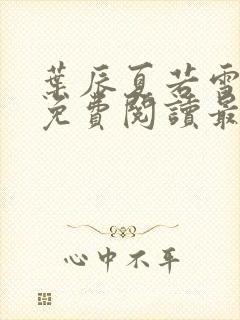 葉辰夏若雪
免費閱讀最
心中不平